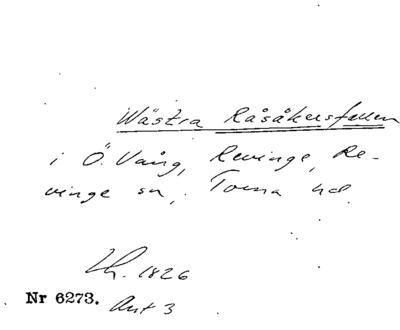 Wästra Råsåkersfallen
i Ö. Vång, Revinge, Re-
vinge sn, Torna hd
Lh. 1826
Nr 6273. Akt 3